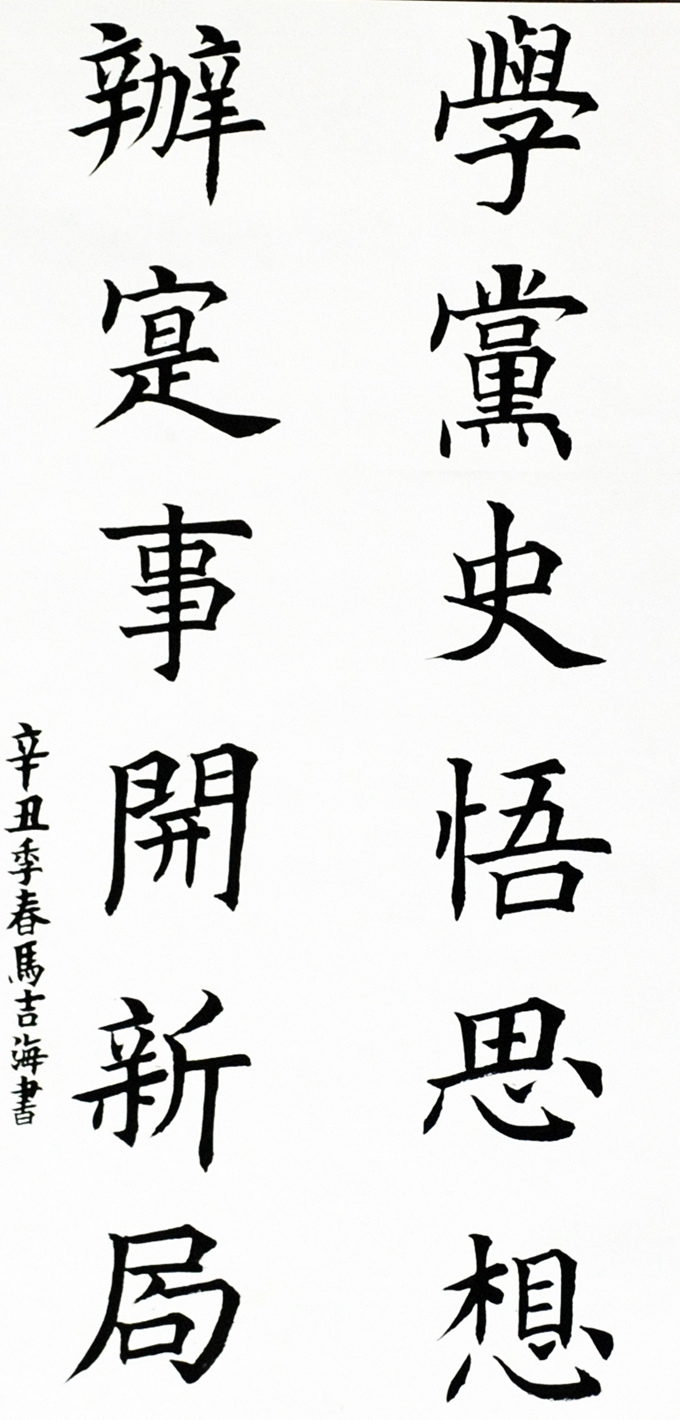 學黨史悟思想
辦寔事開新局
辛丑季春馬吉海書